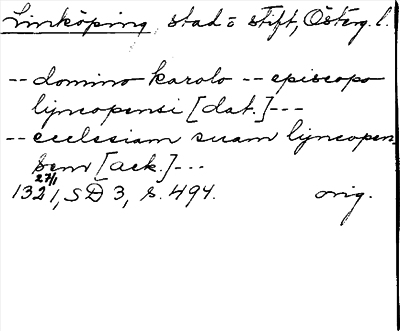 Linköping, stad o stift, Österg. l.
-- domino karolo -- episcopo
lijncopensi [dat.] ---
-- ecclesiam suam lijncopen-
sem [ack.] ---
27/1
1321, SD 3, s. 494. orig.